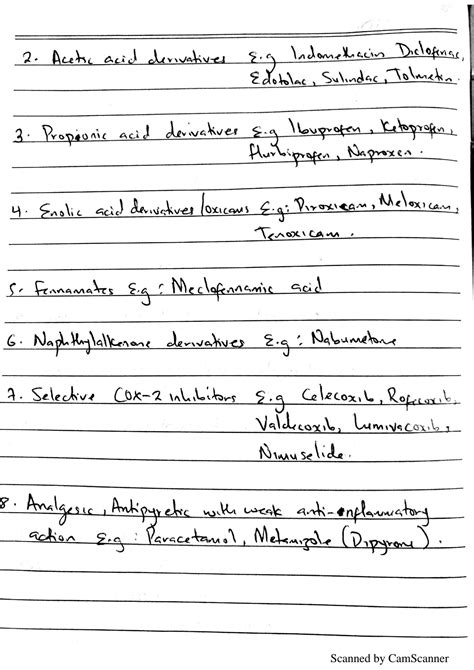 2. Acetic acid derivatives E.g Indomethacin, Diclofenac,
Edotolac, Sulindac, Tolmetin.
3. Propionic acid derivatives E.g Ibuprofen, Ketoprofen,
flurbiprofen, Naproxen.
4. Enolic acid derivatives/oxicams E.g: Piroxicam, Meloxicam,
Tenoxicam.
5. Fennamates E.g: Meclofennamic acid
6. Naphthylalkenone derivatives E.g: Nabumetone
7. Selective COX-2 inhibitors E.g Celecoxib, Rofecoxib,
Valdecoxib, Lumivacoxib,
Nimuselide.
8. Analgesic, Antipyretic with weak anti-inflammatory
action E.g: Paracetamol, Metamizole (Dipyrone).
Scanned by CamScanner